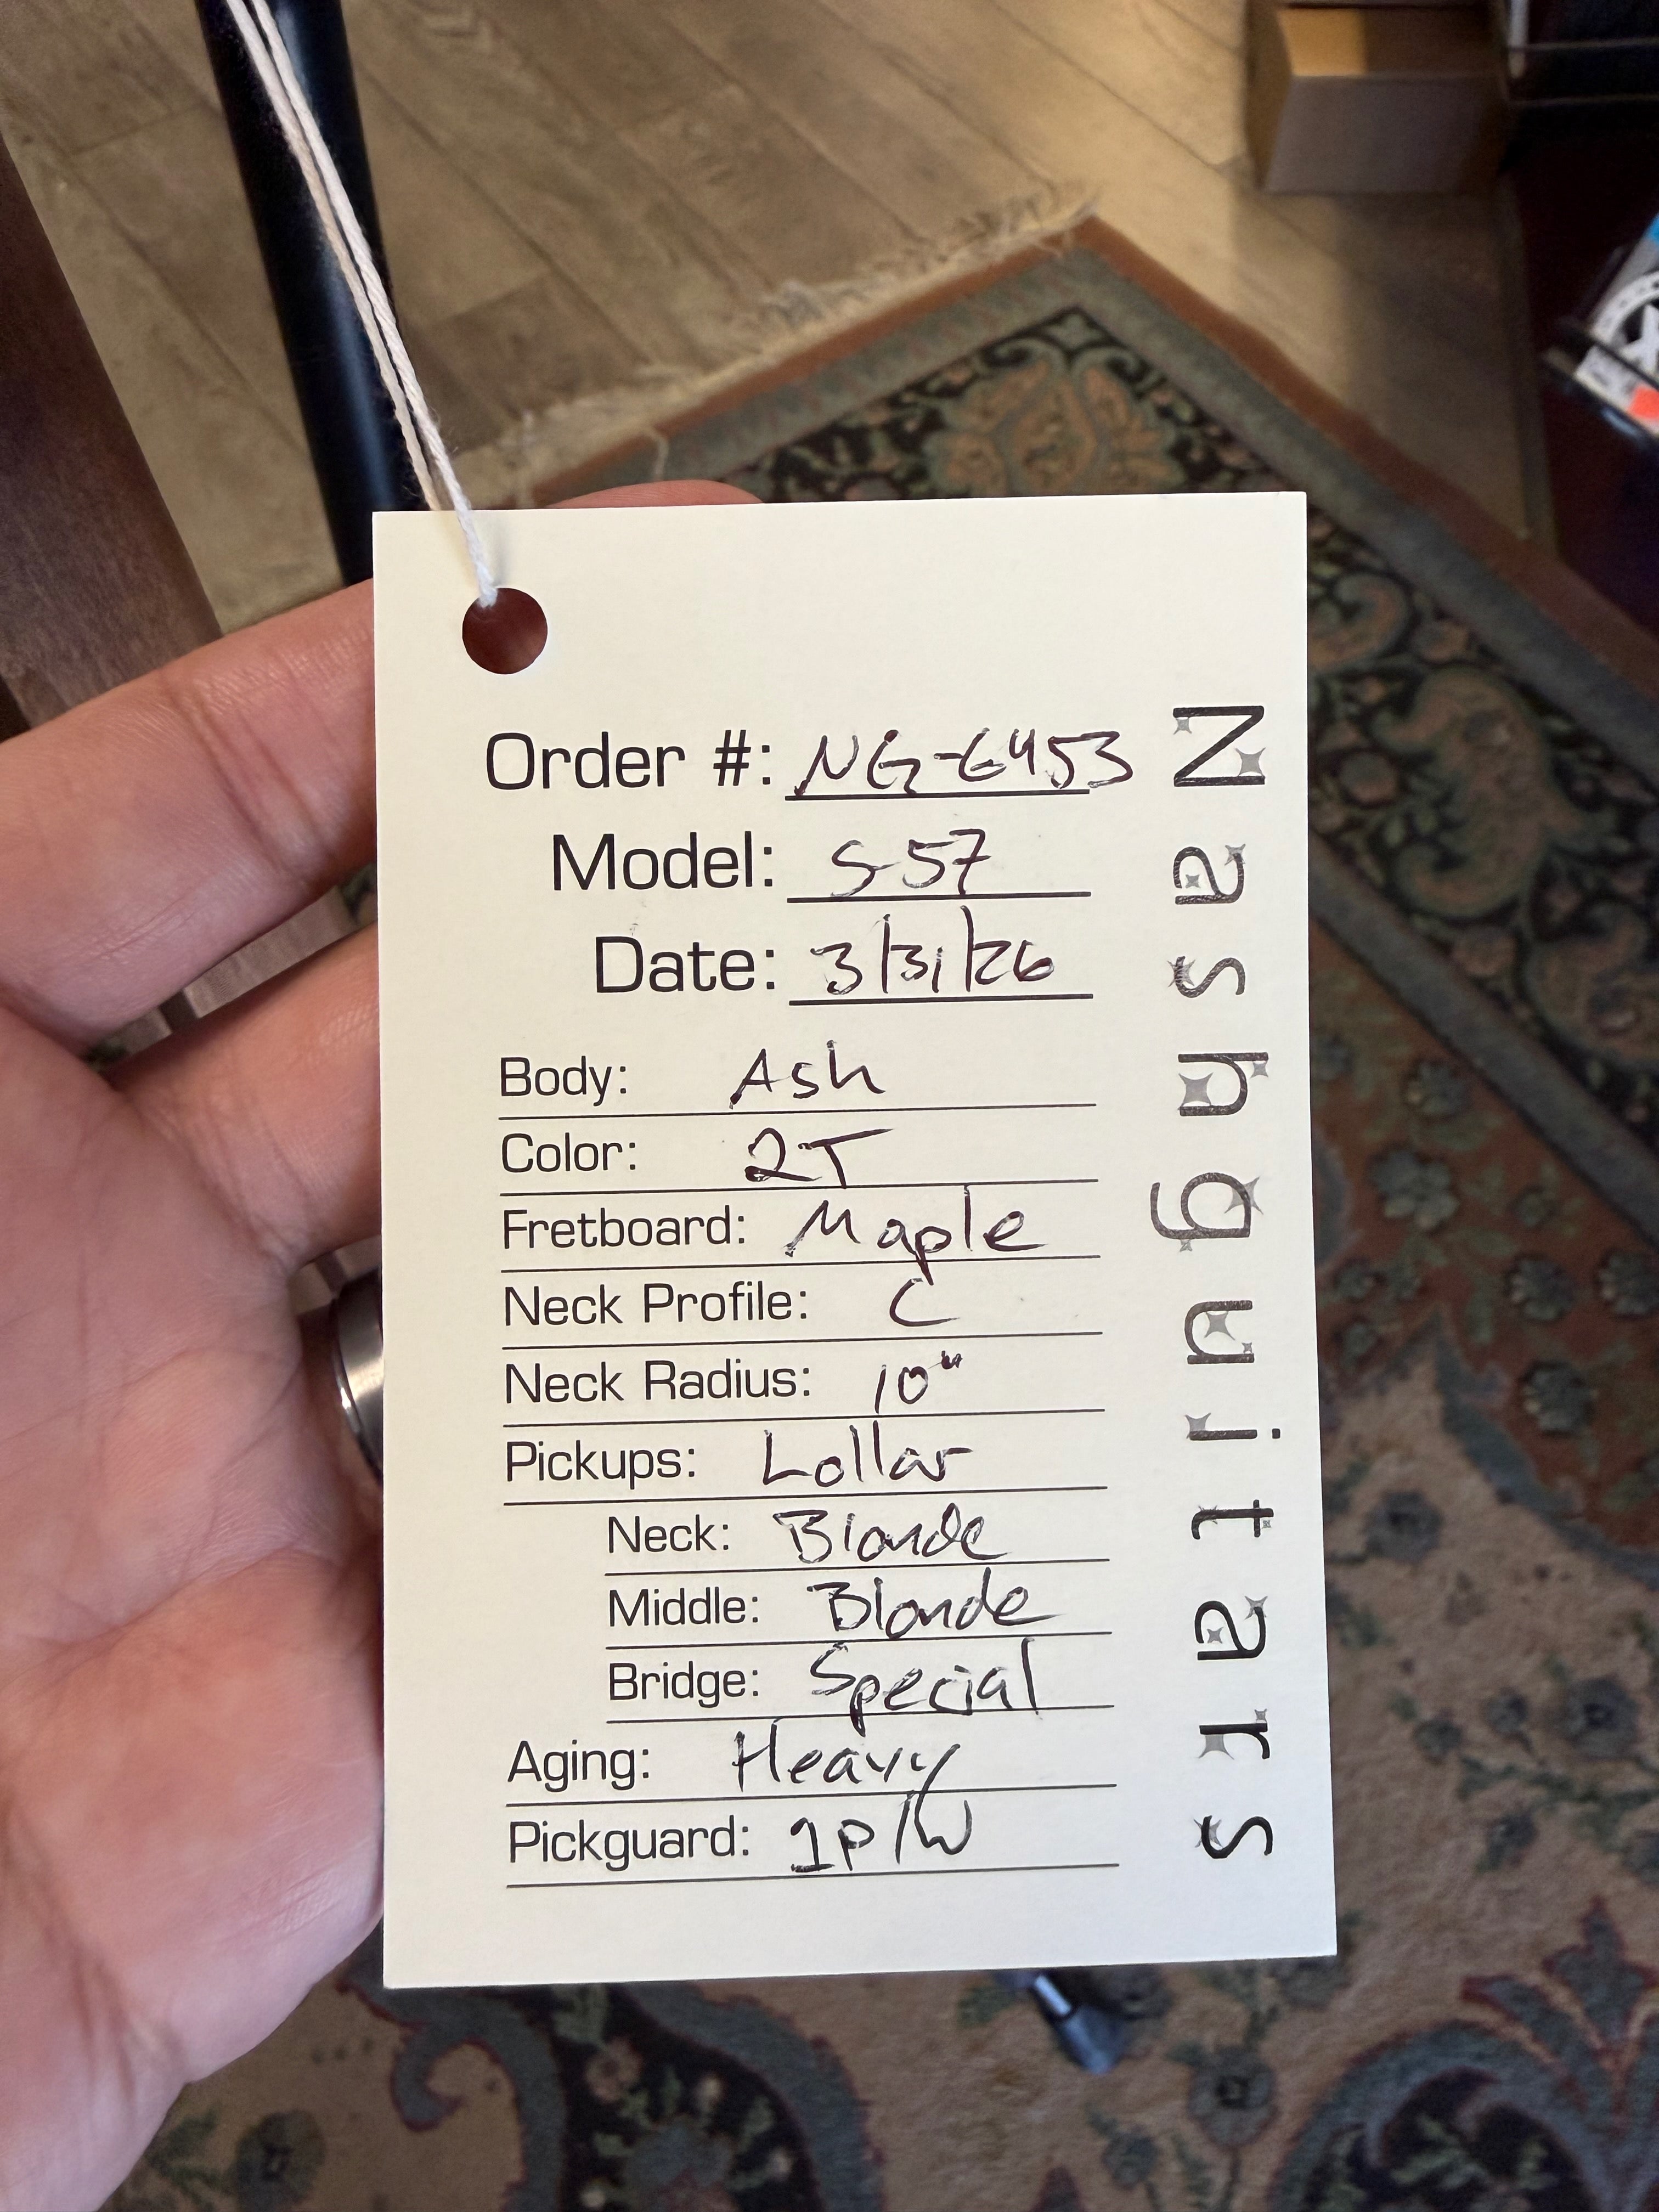 Order #: NG-6453
Model: S-57
Date: 3/31/26
Body: Ash
Color: 2T
Fretboard: Maple
Neck Profile: C
Neck Radius: 10"
Pickups: Lollar
Neck: Blonde
Middle: Blonde
Bridge: Special
Aging: Heavy
Pickguard: 1P/W
Nashguitars